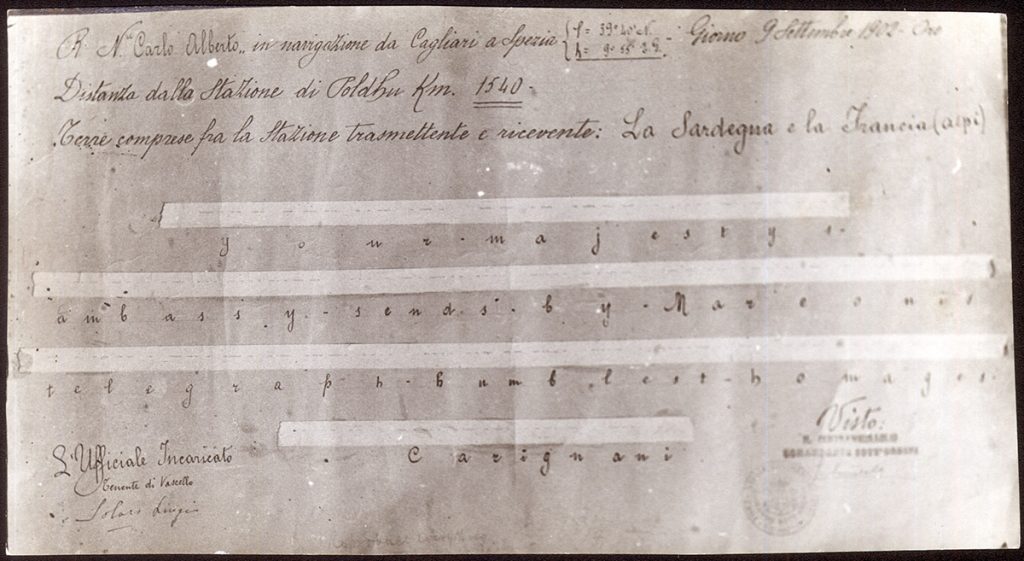 R. Nᵛᵉ "Carlo Alberto" in navigazione da Cagliari a Spezia { f = 39° 40' N. - Giorno 9 Settembre 1902 - Ore
Distanza dalla Stazione di Poldhu Km. 1540 -
Terre comprese fra la Stazione trasmettente e ricevente: La Sardegna e la Francia (alpi)
y o u r - m a j e s t y s -
a m b a s s y - s e n d s - b y - M a r c o n i s
t e l e g r a p h - h u m b l e s t - h o m a g e s -
C a r i g n a n i
L'Ufficiale Incaricato
Tenente di Vascello
Solari Luigi
Visto:
IL CONTRAMMIRAGLIO
COMANDANTE SOTT'ORDINI